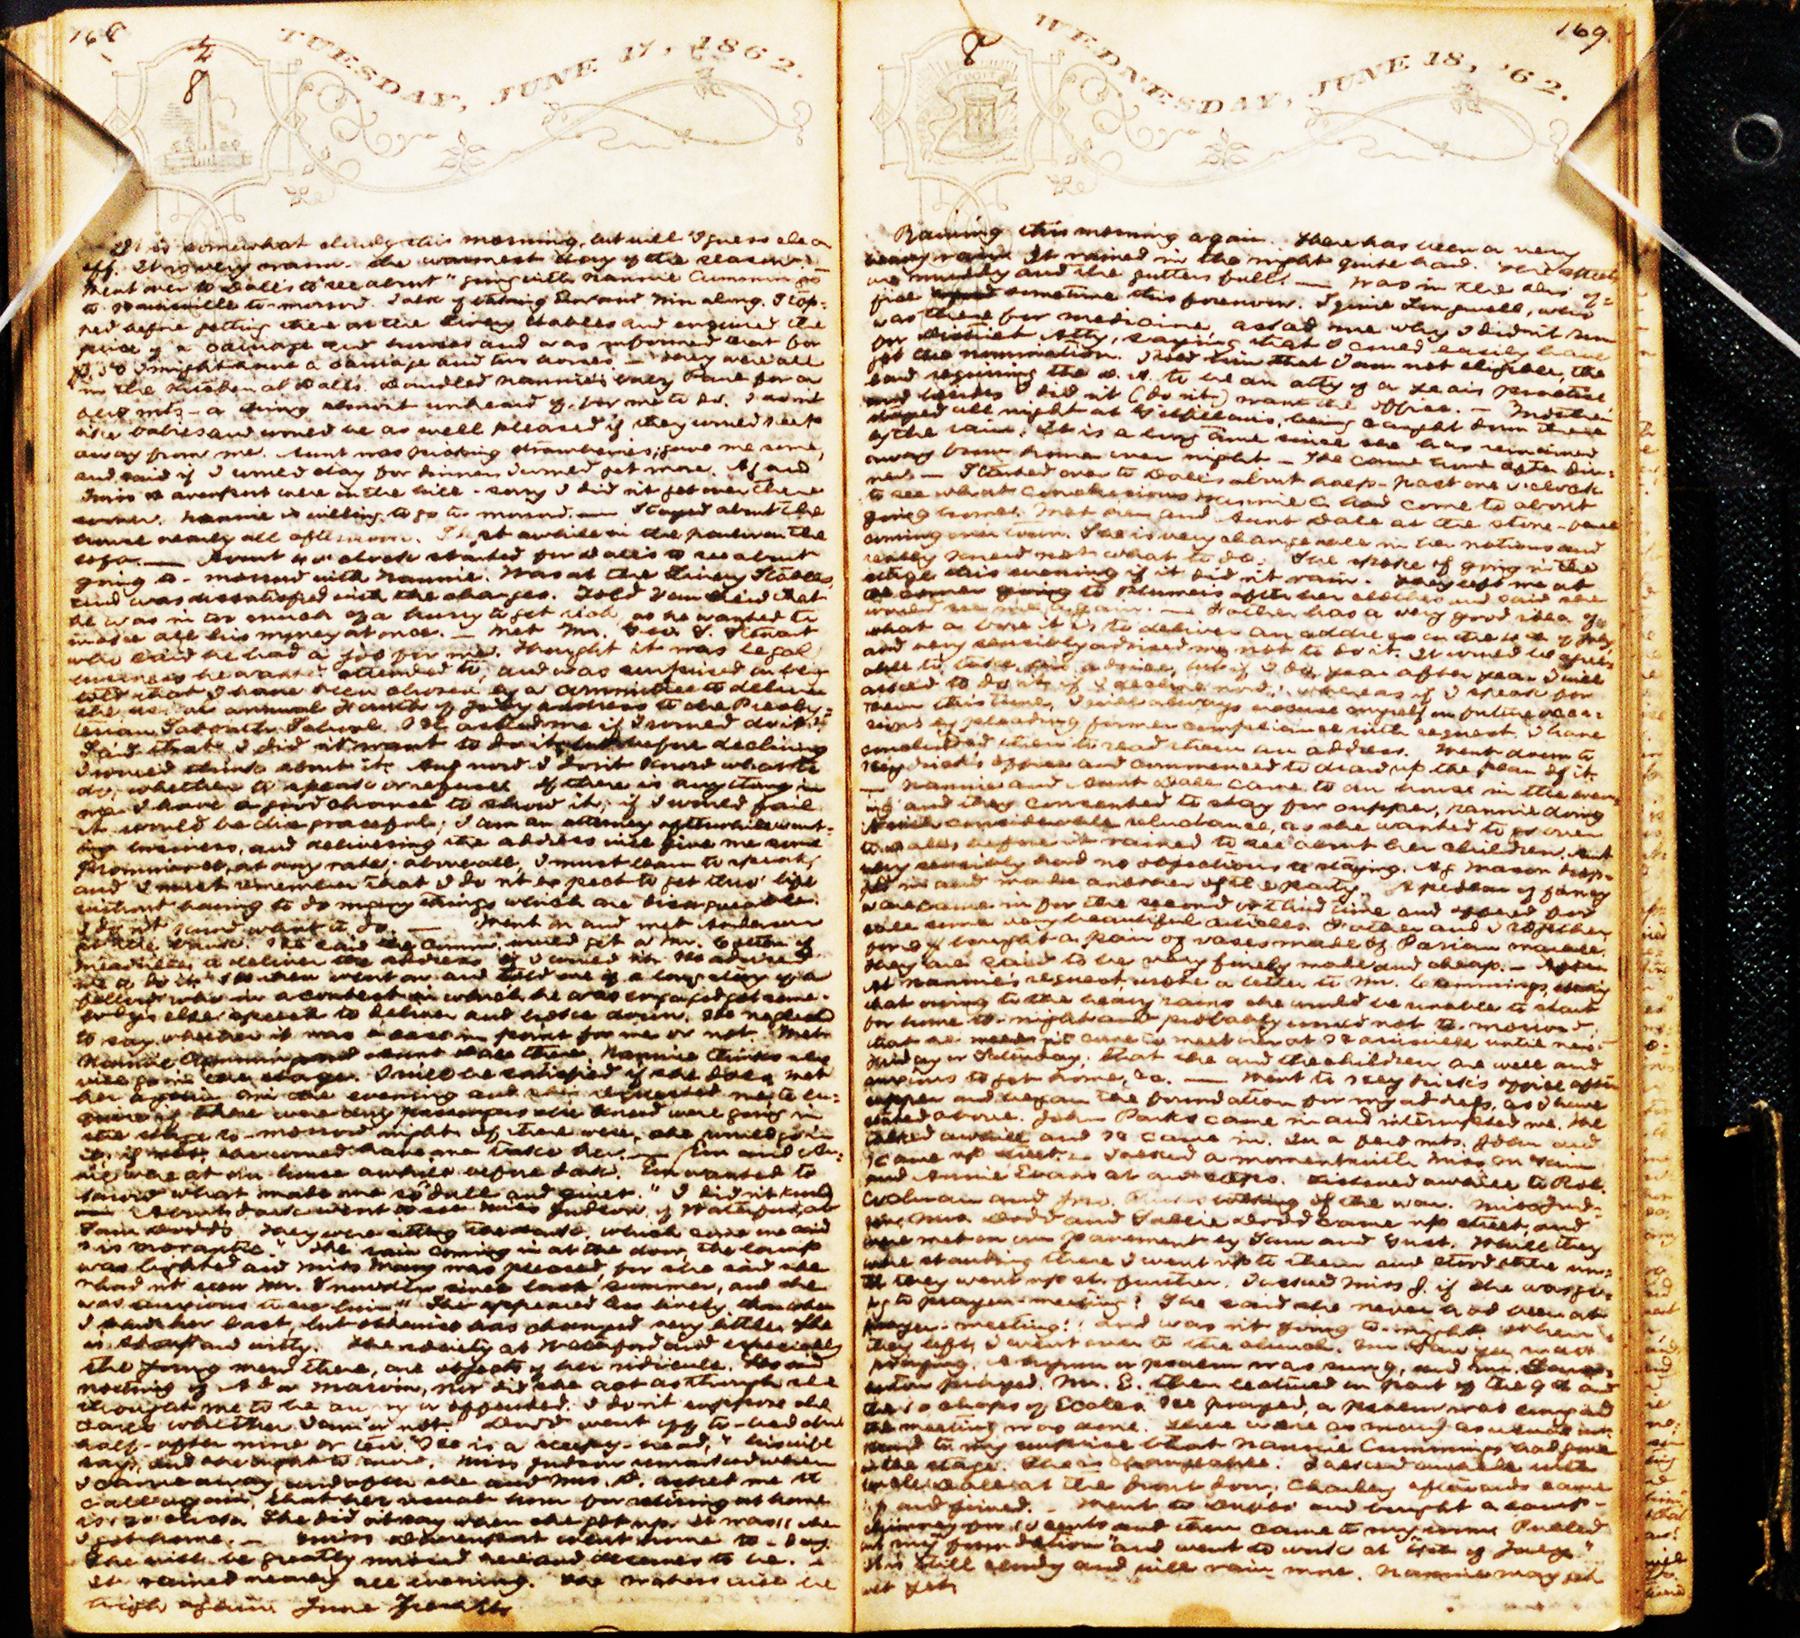 168
TUESDAY, JUNE 17, 1862.
8
It is somewhat cloudy this morning, but will I guess clear
off. It is very warm - the warmest day of the season. -
Went over to Dall's to see about "going with Nannie Cummings
to Louisville to-morrow. Talk of taking Em and Min along. Stop-
ped before getting there at the Livery Stables and enquired the
price of a carriage and horses and was informed that for
I might have a carriage and two horses. - They were all
in the kitchen at Dall's. Dandled Nannie's baby Jane for a
few mts - a thing almost unheard of for me to do. I don't
like babies and would be as well pleased if they would keep
away from me. Aunt was picking strawberries; gave me some,
and said if I would stay for dinner I would get more.
Miss were on the hill - sorry I did n't get over there
sooner. Nannie is willing to go to-morrow. - Stayed about the
house nearly all afternoon. Slept awhile in the parlor on the
sofa. - About o'clock started for Dall's to see about
going to-morrow with Nannie. Was at the Livery Stables,
and was dissatisfied with the charges. Told that
he was in too much of a hurry to get rich, as he wanted to
make all his money at once. - Met Mr. Geo. S. Stuart
who said he had a job for me. Thought it was legal
business he wanted attended to, and was surprised in being
told that I have been chosen by a committee to deliver
the annual Fourth of July address to the Presby-
terian Sabbath School. He asked me if I would do it?
I said that I did n't want to do it, but before declining
I would think about it. And now I don't know what to
do, whether to speak or refuse. If there is anything in
me I have a good chance to show it; if I would fail
it would be disgraceful; I am an attorney afterwhile want-
ing business, and delivering the address will give me some
prominence, at any rate; above all, I must learn to speak;
and I must remember that I do n't expect to get thro' life
without having to do many things which are disagreeable.
I do n't know what to do. - Went on and met Anderson
at the bank. He said the Comm. would get a Mr. of
Meadville to deliver the address if I would n't. He advised
me to do it. He then went on and told me of a long story of a
fellow who in a contest in which he was engaged got some-
body's else speech to deliver and broke down. He neglected
to say whether it was a case in point for me or not. Met
Nannie Cummings and Aunt Dall there. Nannie thinks she
will go in the stage. I will be satisfied if she does. Met
her again in the evening and she requested me to en-
quire if there were any passengers she knew were going in
the stage to-morrow night. If there were, she would go in
it; if not, she would have me take her. - Em and
were at our house awhile before dark. Em wanted to
know what made me so "dull and quiet." I did n't know
- About dark went to see Miss Judson, of Waterford, at
Sam Dodd's. They were sitting in the dark, which some one said
"is romantic." The rain coming in at the door, the lamp
was lighted and Miss Mary was pleased, for she said she
"had n't seen Mr. since last summer, and she
was anxious to see him." She appeared less lively than when
I saw her last, but otherwise has changed very little. She
is stout and witty. The society at Waterford and especially
the young men there, are objects of her ridicule. She said
nothing of Marvin, nor did she act as though she
thought me to be angry or offended. I do n't suppose she
cares whether I am or not. Dodd went off to-bed abt
half-after nine or ten. "He is a sleepy-head," his wife
says, and she ought to know. Miss Judson remarked when
I came away, and after she and Mrs. D. asked me to
call again, that her usual hour for retiring at home
is 12 o'clock. She did n't say when she got up. It was 11 when
I got home. - Miss Davenport went home to-day.
She will be greatly missed here and deserves to be. -
It rained nearly all evening. The waters will be
high again. June freshets.
169
WEDNESDAY, JUNE 18, '62.
8
Raining this morning again. There has been a very
heavy rain. It rained in the night quite hard. The streets
are muddy and the gutters full. - Was in the drs of-
fice sometime this forenoon. Squire Longwell, who
was there for medicine, asked me why I didn't run
for District Atty, saying that I could easily have
got the nomination. I told him that I am not eligible, the
law requiring the D. A. to be an atty of a years practice
and besides I did n't (do n't) want the office. - Mother
stayed all night at McWilliams', being caught down there
by the rain. It is a long time since she has remained
away from home over night - She came home after din-
ner - Started over to Dall's about half-past one o'clock
to see what conclusions Nannie C. had come to about
going home. Met her and Aunt Dall at the store-
coming over town. She is very changeable in her notions and
really knew not what to do. She spoke of going in the
stage this evening if it did n't rain. They left me at
the corner going to Plumer's after her clothes and said she
would see me again. - Father has a very good idea of
what a bore it is to deliver an address on the 4th of July
and very sensibly advised me not to do it. It would be agree-
able to take his advice, but if I do, year after year I will
asked to do it, if I decline now; whereas if I speak for
them this time, I will always excuse myself on future occa-
sions by pleading former compliance with request. I have
concluded then to read them an address. Went down to
Heydrick's office and commenced to draw up the plan of it.
- Nannie and Aunt Dall came to our house in the even-
ing and they consented to stay for supper, Nannie doing
so with considerable reluctance, as she wanted to go over
to Dall's before it rained to see about her children. Aunt
very sensibly had no objections to staying. Mason step-
ped in and made another of the party. A pedlar of fancy
wares came in for the second or third time and offered for
sale some very beautiful articles. Father and I together
bought a pair of vases made of Parian marble.
They are said to be very finely made and cheap. - After
at Nannie's request, wrote a letter to Mr. Cummings, saying
that owing to the heavy rains she would be unable to start
for home to-night and probably would not to-morrow,
that he need n't come to meet her at Louisville until next
Friday or Saturday; that she and the children are well and
anxious to get home, &c. - Went to Heydrick's office after
supper and began the foundation for my address, as I have
stated above. John Parks came in and interrupted me. He
talked awhile and H came in. In a few mts. John and
I came up street. - Talked a moment with Miss
and Annie Evans at our steps. Listened awhile to Rob.
Colman and Jno. talking of the war. Miss Jud-
son, Mrs. Dodd and Sallie Dodd came up street, and
were met on our pavement by Sam and Gust. While they
were standing there I went up to them and stood there un-
til they went up st. further. I asked Miss J. if she was go-
ing to prayer-meeting? She said she never had been at
prayer-meeting!! and was n't going to-night. When
they left, I went over to the church. was
praying. A hymn or psalm was sung, and Mr.
prayed. Mr. E. then lectured on part of the 9th and
the 10 chaps of Eccles. He prayed, a psalm was sung and
the meeting was done. There were as many as usual in.
Heard to my surprise that Nannie Cummings had gone
in the stage. She is changeable. Talked awhile with
Dall at the front door; Charley afterwards came
up and joined. - Went to and bought a lamp-
chimney for 10 cents and then came to my room. Pulled
out my "foundation" and went to work at "4th of July."
It is still cloudy and will rain more. Nannie may get
wet yet.